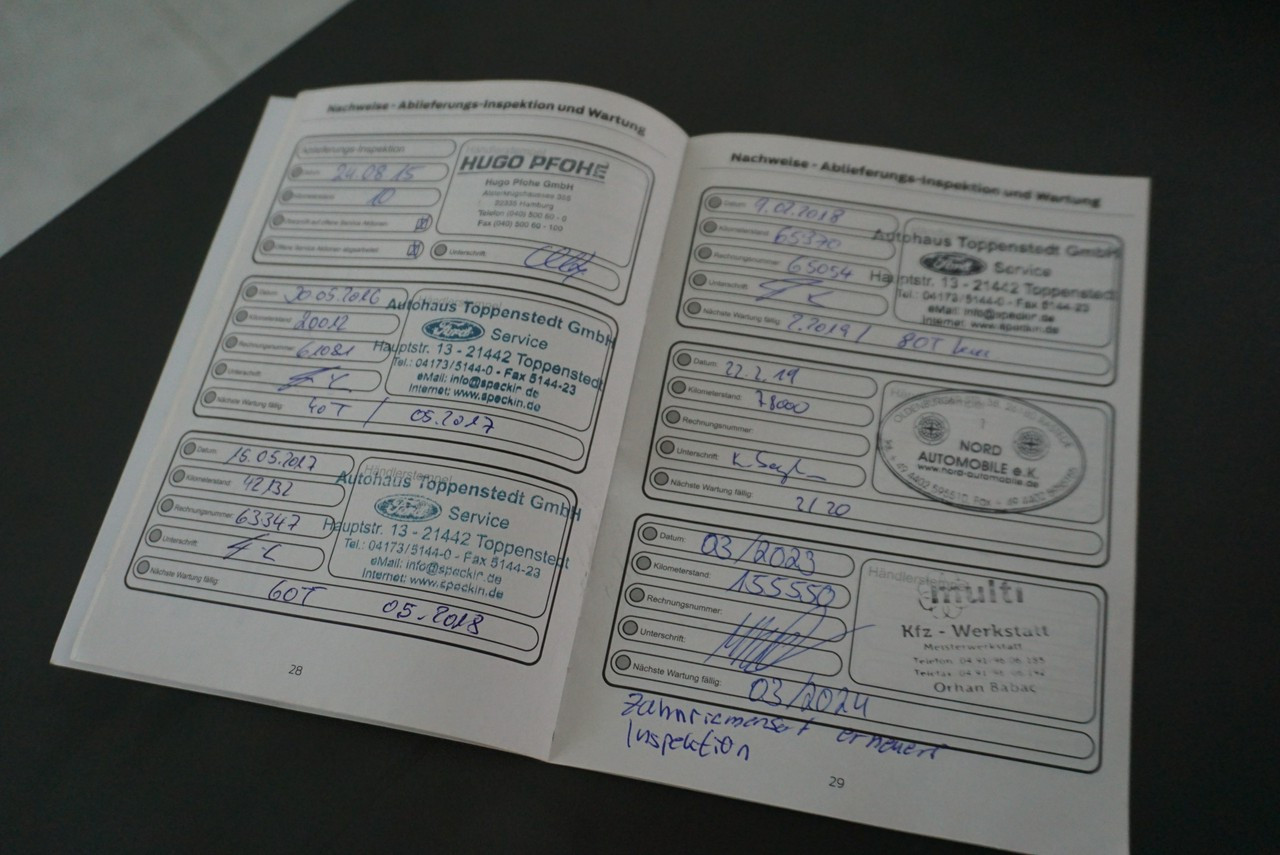 Nachweise - Ablieferungs-Inspektion und Wartung
Ablieferungs-Inspektion
Datum 24.08.15
Kilometerstand 10
Händlerstempel
HUGO PFOHE
Hugo Pfohe GmbH
Alsterkrugchaussee 355
22335 Hamburg
Telefon (040) 500 60 - 0
Fax (040) 500 60 - 100
Unterschrift:
Datum: 30.05.2016
Kilometerstand: 20012
Rechnungsnummer: 61081
Unterschrift:
Nächste Wartung fällig: 40T / 05.2017
Händlerstempel
Autohaus Toppenstedt GmbH
Ford Service
Hauptstr. 13 - 21442 Toppenstedt
Tel.: 04173/5144-0 - Fax 5144-23
eMail: info@speckin.de
Internet: www.speckin.de
Datum: 15.05.2017
Kilometerstand: 42132
Rechnungsnummer: 63347
Unterschrift:
Nächste Wartung fällig: 60T 05.2018
Händlerstempel
Autohaus Toppenstedt GmbH
Ford Service
Hauptstr. 13 - 21442 Toppenstedt
Tel.: 04173/5144-0 - Fax 5144-23
eMail: info@speckin.de
Internet: www.speckin.de
28
Nachweise - Ablieferungs-Inspektion und Wartung
Datum: 9.02.2018
Kilometerstand: 65370
Rechnungsnummer: 65054
Unterschrift:
Nächste Wartung fällig: 2.2019 / 80T km
Autohaus Toppenstedt GmbH
Ford Service
Hauptstr. 13 - 21442 Toppenstedt
Tel.: 04173/5144-0 - Fax 5144-23
eMail: info@speckin.de
Internet: www.speckin.de
Datum: 22.2.19
Kilometerstand: 78000
Rechnungsnummer:
Unterschrift:
Nächste Wartung fällig: 2/20
NORD
AUTOMOBILE e.K.
www.nord-automobile.de
Datum: 03/2023
Kilometerstand: 155550
Rechnungsnummer:
Unterschrift:
Nächste Wartung fällig: 03/2024
Händlerstempel
multi
Kfz - Werkstatt
Meisterwerkstatt
Orhan Babac
Zahnriemenset erneuert
Inspektion
29